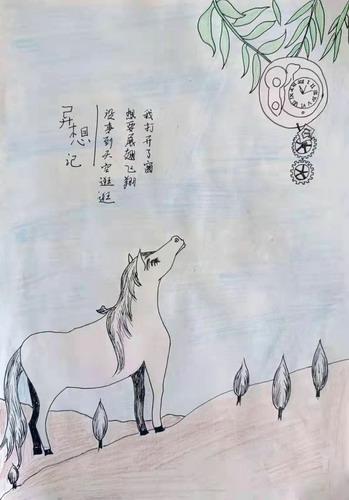 我打开了窗
想要展翅飞翔
没事到天空逛逛
异想记